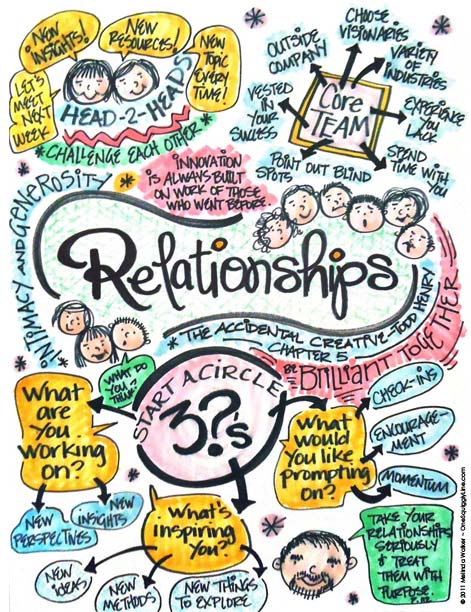 NEW
INSIGHTS!
NEW
RESOURCES!
NEW
TOPIC
EVERY
TIME!
LET'S
MEET
NEXT
WEEK
HEAD-2-HEADS
*CHALLENGE EACH OTHER*
CHOOSE
VISIONARIES
OUTSIDE
COMPANY
VARIETY
OF
INDUSTRIES
VESTED
IN
YOUR
SUCCESS
Core
TEAM
EXPERIENCE
YOU
LACK
POINT OUT BLIND
SPOTS
SPEND
TIME WITH
YOU
INNOVATION
IS ALWAYS BUILT
ON WORK OF THOSE
WHO WENT BEFORE
*INTIMACY AND GENEROSITY
Relationships
*THE ACCIDENTAL CREATIVE-TODD HENRY
CHAPTER 5
BE BRILLIANT TOGETHER
WHAT DO
YOU
THINK?
START A CIRCLE
3?'s
What
are
you
working
on?
NEW
PERSPECTIVES
NEW
INSIGHTS
What's
inspiring
you?
NEW
IDEAS
NEW
METHODS
NEW THINGS
TO EXPLORE
What
would
you like
prompting
on?
CHECK-INS
ENCOURAGE-
MENT
MOMENTUM
TAKE YOUR
RELATIONSHIPS
SERIOUSLY
& TREAT
THEM WITH
PURPOSE.
P. 82
© 2011 Melinda Walker ~ OneSquigglyLine.com